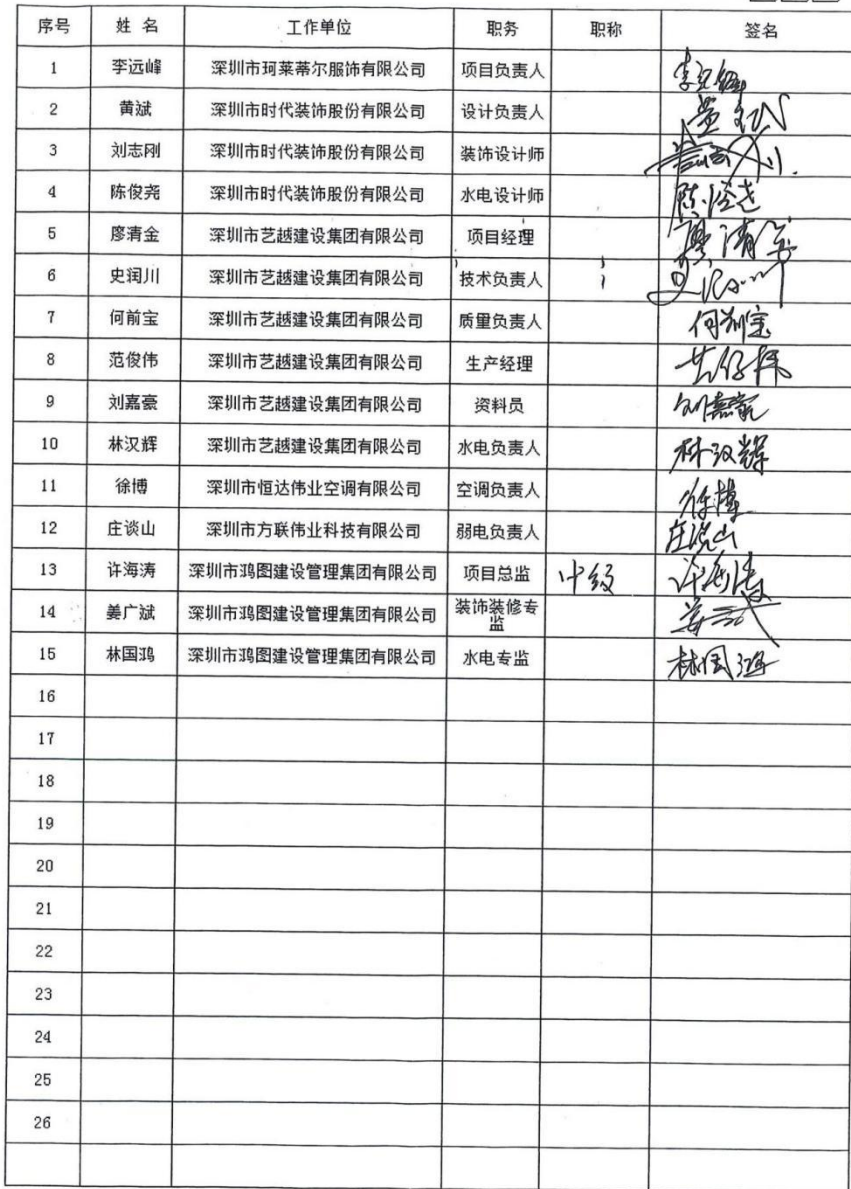 序号 姓 名 工作单位 职务 职称 签名
1 李远峰 深圳市珂莱蒂尔服饰有限公司 项目负责人
2 黄斌 深圳市时代装饰股份有限公司 设计负责人
3 刘志刚 深圳市时代装饰股份有限公司 装饰设计师
4 陈俊尧 深圳市时代装饰股份有限公司 水电设计师 陈俊尧
5 廖清金 深圳市艺越建设集团有限公司 项目经理 廖清金
6 史润川 深圳市艺越建设集团有限公司 技术负责人
7 何前宝 深圳市艺越建设集团有限公司 质量负责人 何前宝
8 范俊伟 深圳市艺越建设集团有限公司 生产经理 范俊伟
9 刘嘉豪 深圳市艺越建设集团有限公司 资料员 刘嘉豪
10 林汉辉 深圳市艺越建设集团有限公司 水电负责人 林汉辉
11 徐博 深圳市恒达伟业空调有限公司 空调负责人 徐博
12 庄谈山 深圳市方联伟业科技有限公司 弱电负责人 庄谈山
13 许海涛 深圳市鸿图建设管理集团有限公司 项目总监 中级 许海涛
14 姜广斌 深圳市鸿图建设管理集团有限公司 装饰装修专
监
15 林国鸿 深圳市鸿图建设管理集团有限公司 水电专监 林国鸿
16
17
18
19
20
21
22
23
24
25
26